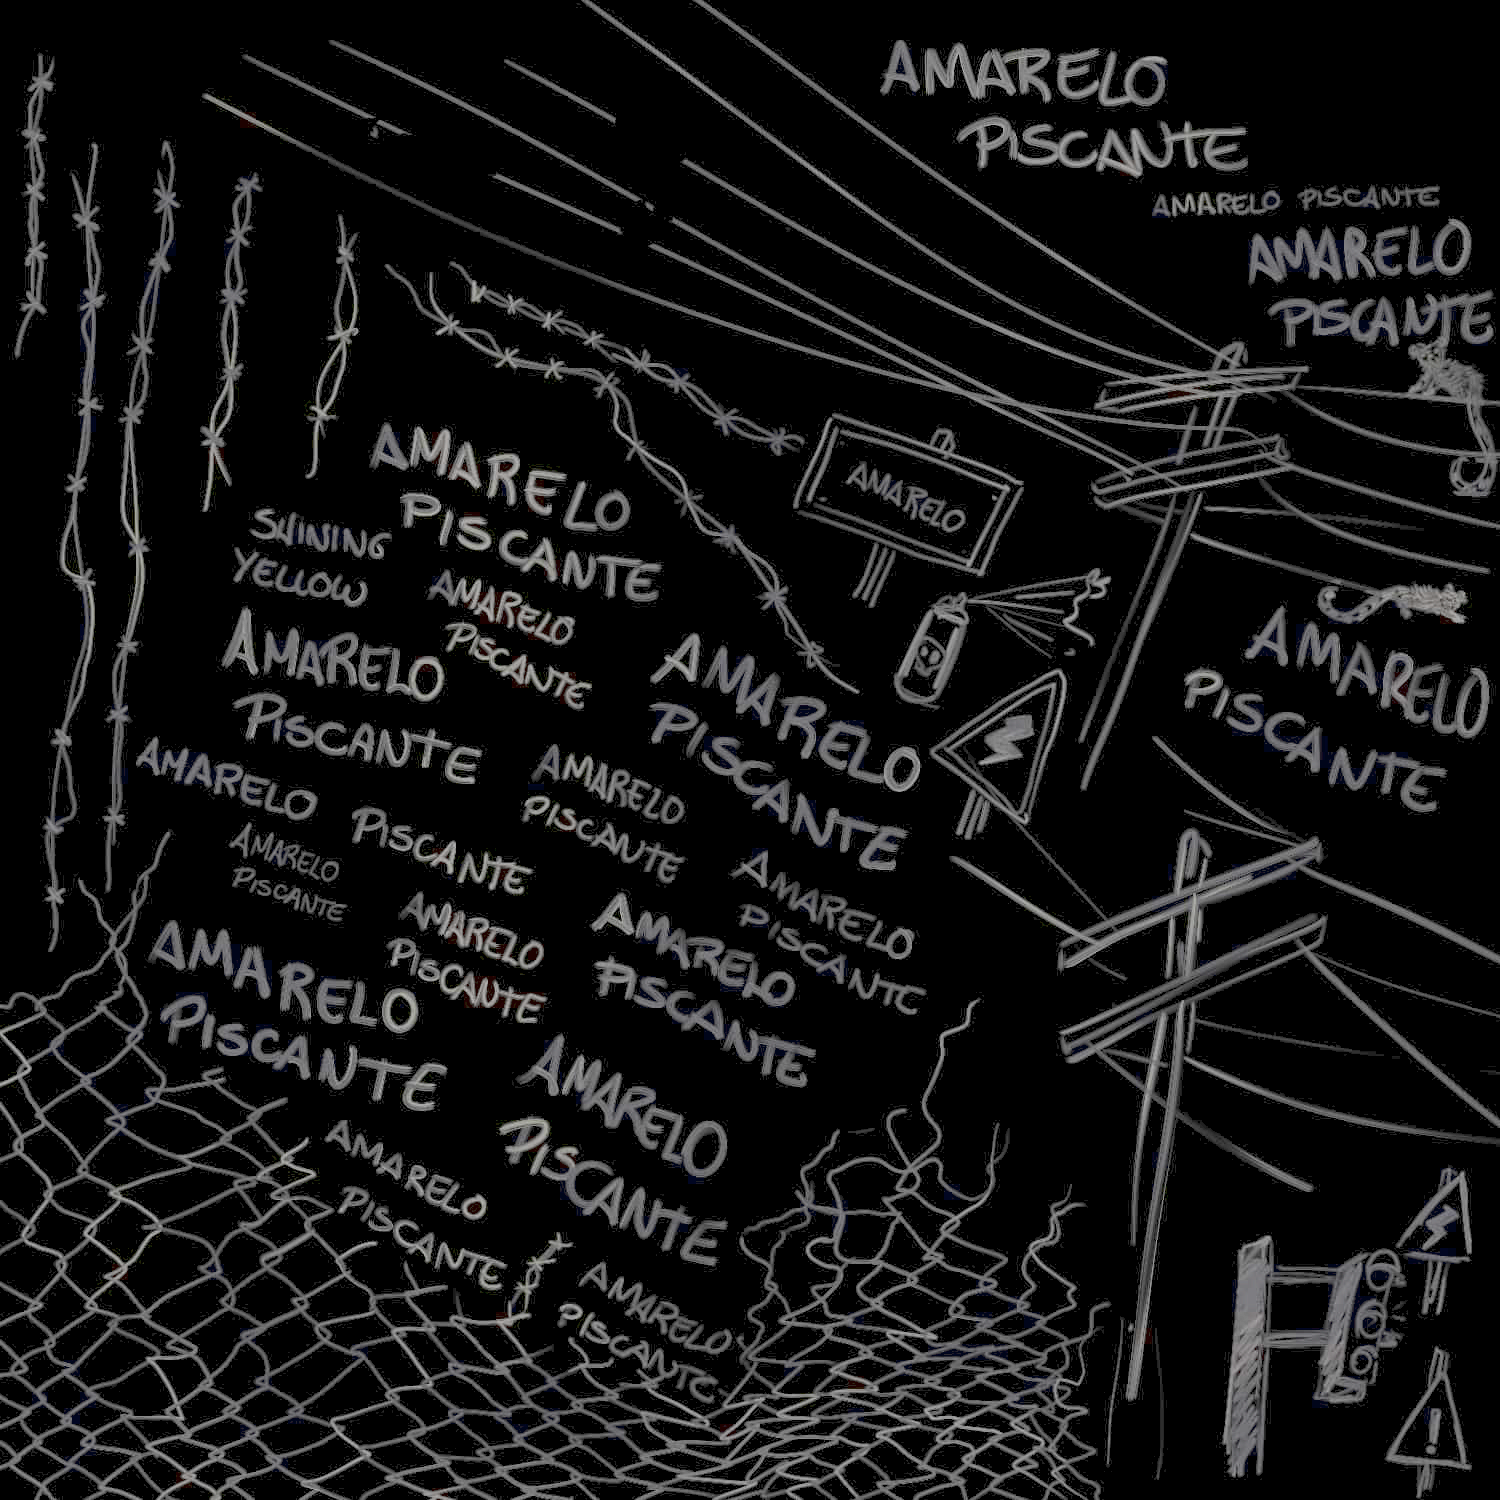 AMARELO
PISCANTE
AMARELO PISCANTE
AMARELO
PISCANTE
AMARELO
PISCANTE
AMARELO
SHINING
YELLOW
AMARELO
PISCANTE
AMARELO
PISCANTE
AMARELO
PISCANTE
AMARELO
PISCANTE
AMARELO PISCANTE
AMARELO
PISCANTE
AMARELO
PISCANTE
AMARELO
PISCANTE
AMARELO
PISCANTE
AMARELO
PISCANTE
AMARELO
PISCANTE
AMARELO
PISCANTE
AMARELO
PISCANTE
AMARELO
PISCANTE
!